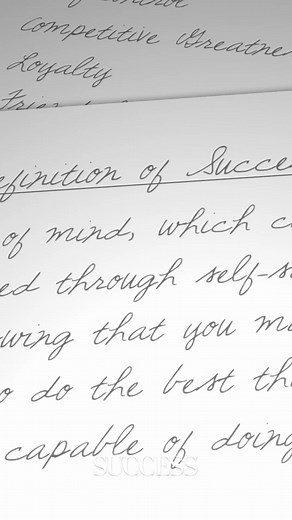 Competitive Greatne
Loyalty
efinition of Succe
of mind, which c
ed through self-s
wing that you m
o do the best th
capable of doing
SUCCESS